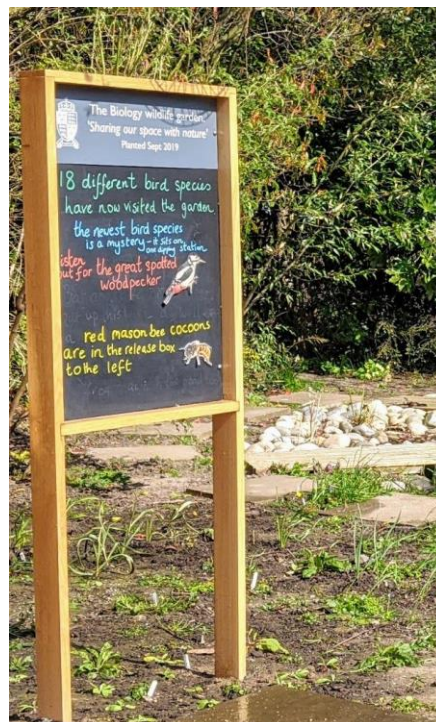 The Biology wildlife garden
'Sharing our space with nature'
Planted Sept 2019
18 different bird species
have now visited the garden
the newest bird species
is a mystery - it sits on
our dipping station
listen
out for the great spotted
woodpecker
red mason bee cocoons
are in the release box
to the left